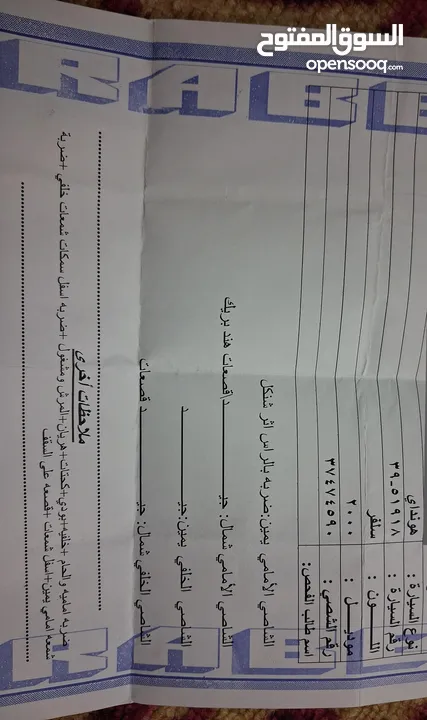 السوق المفتوح
opensooq.com
RABE
نوع السيارة : هونداي
رقم السيارة : ٣٩-٥١٩١٨
اللــون : سلفر
موديــل : ٢٠٠٠
رقم الشصي : ٣٧٤٧٤٥٩٠
اسم طالب الفحص:
الشاصي الأمامي يمين: ضربه بالراس اثر شنكل
الشاصي الأمامي شمال: جيــد اقصعات هند بريك
الشاصي الخلفي يمين: جيــد
الشاصي الخلفي شمال: جيــد قصعات
ملاحظات أخرى
ضربه اماميه والحام +خلفيه+بودي+كحتات+هريان+المرش ومشغول +ضربه اسفل سمكات شمعات خلفي +ضربة
شمعه امامي يمين+اسفل شمعات +قصعه على السقف